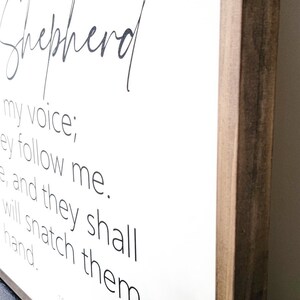 Shepherd
my voice;
ey follow me.
e, and they shall
will snatch them
hand.